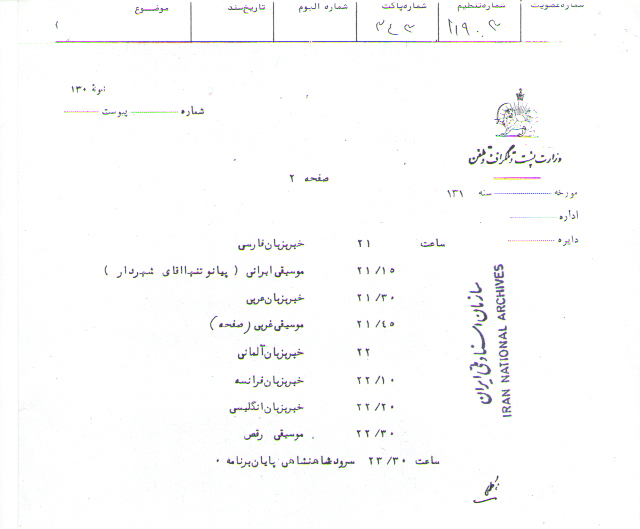 شماره عضویت شماره تنظیم شماره پاکت شماره البوم تاریخ سند موضوع
نمونهٔ ۱۳۰
شماره پیوست
وزارت پست و تلگراف و تلفن
صفحه ۲
مورخه سنه ۱۳۱
اداره
دایره
ساعت ۲۱ خبر بزبان فارسی
۲۱/۱۵ موسیقی ایرانی ( پیانو تنها اقای شهردار )
۲۱/۳۰ خبر بزبان عربی
۲۱/۴۵ موسیقی غربی (صفحه)
۲۲ خبر بزبان آلمانی
۲۲/۱۰ خبر بزبان فرانسه
۲۲/۲۰ خبر بزبان انگلیسی
۲۲/۳۰ موسیقی رقص
ساعت ۲۳/۳۰ سرود شاهنشاهی پایان برنامه .
سازمان اسناد ملی ایران
IRAN NATIONAL ARCHIVES